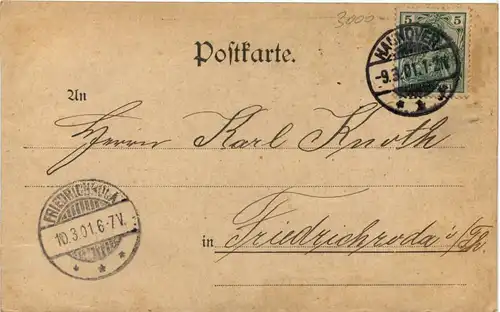 3000
5 5
Postkarte.
HANNOVER
-9.3.01.1-2V
* * *
An
Herrn Karl Knoth
FRIEDRICHRODA
10.3.01.6-7V.
* * *
in Friedrichroda i/Th.